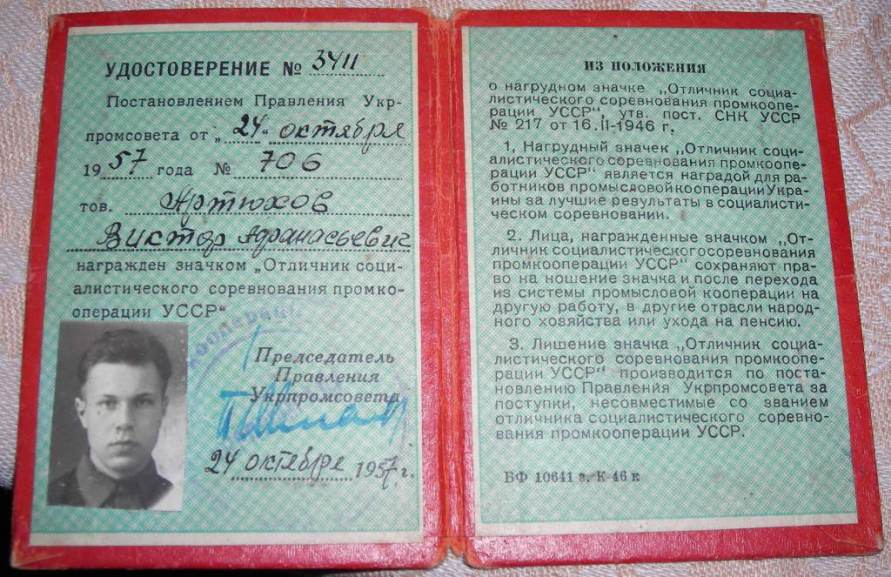 УДОСТОВЕРЕНИЕ № 3411
Постановлением Правления Укр-
промсовета от „24“ октября
1957 года № 706
тов. Артюхов
Виктор Афанасьевич
награжден значком „Отличник соци-
алистического соревнования промко-
операции УССР“
Председатель
Правления
Укрпромсовета
24 октября 1957 г.
ИЗ ПОЛОЖЕНИЯ
о нагрудном значке „Отличник социа-
листического соревнования промкоопе-
рации УССР“, утв. пост. СНК УССР
№ 217 от 16.II-1946 г.
1. Нагрудный значек „Отличник соци-
алистического соревнования промкоопе-
рации УССР“ является наградой для ра-
ботников промысловой кооперации Укра-
ины за лучшие результаты в социалисти-
ческом соревновании.
2. Лица, награжденные значком „От-
личник социалистического соревнования
промкооперации УССР“ сохраняют пра-
во на ношение значка и после перехода
из системы промысловой кооперации на
другую работу, в другие отрасли народ-
ного хозяйства или ухода на пенсию.
3. Лишение значка „Отличник социа-
листического соревнования промкоопе-
рации УССР“ производится по поста-
новлению Правления Укрпромсовета за
поступки, несовместимые со званием
отличника социалистического соревно-
вания промкооперации УССР.
БФ 10641 з. К-46 к